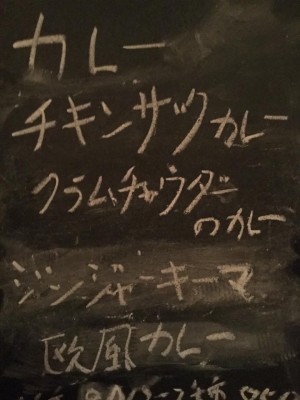 カレー
チキンサックカレー
クラムチャウダー
のカレー
ジンジャーキーマ
欧風カレー